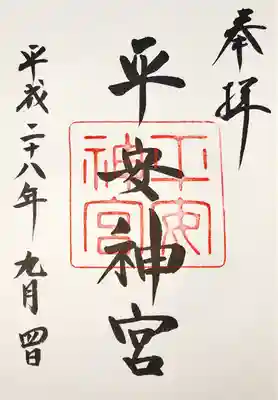 奉拝
平安神宮
平安神宮
平成二十八年 九月 四日